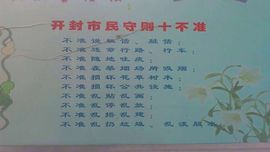 开封市民守则十不准
不准说脏话、脏话；
不准违章行路、行车；
不准随地吐痰；
不准在禁烟场所吸烟；
不准损坏花草树木；
不准损坏公共设施；
不准乱贴乱画；
不准乱停乱放；
不准乱搭乱建；
不准乱扔垃圾、乱泼脏水